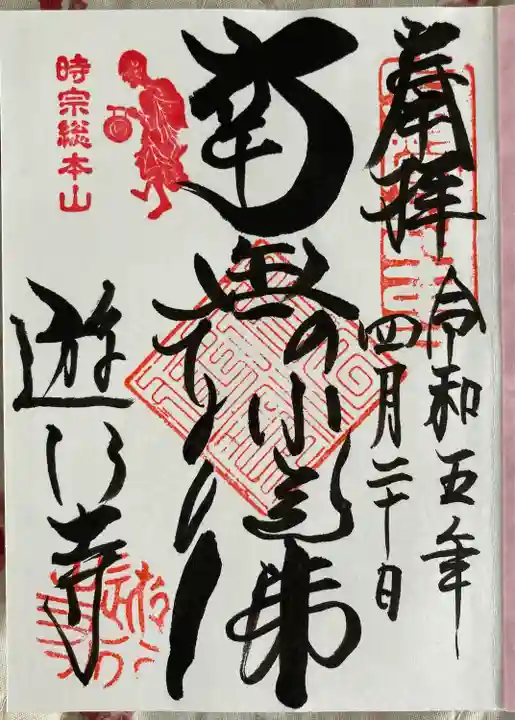 奉拝
令和五年
四月二十日
南無阿弥陀佛
遊行寺
時宗総本山